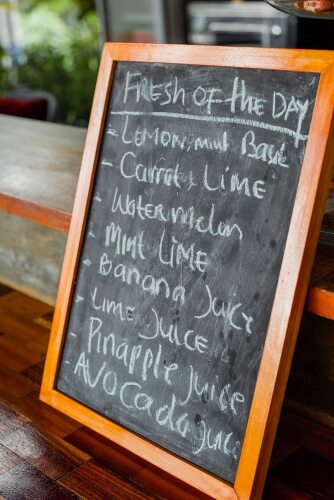 FResH OF the DAY
- Lemon, mint Basil
- Carrot & Lime
- Watermelon
- Mint LIME
- Banana Juicy
- Lime Juice
- Pinapple Juice
- AVOCado Juic